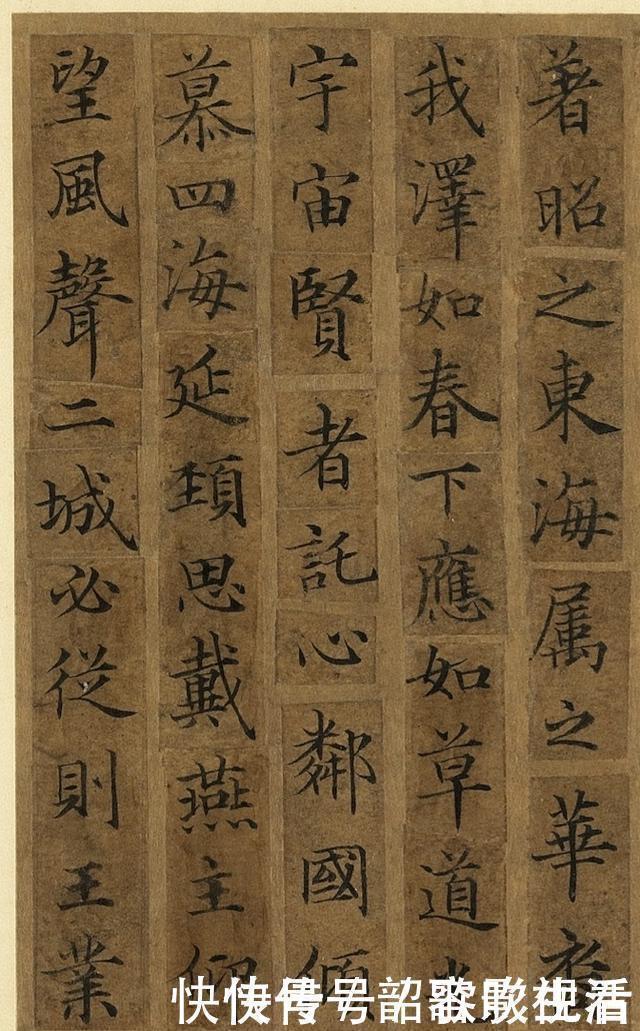 著昭之東海属之華
我澤如春下應如草道
宇宙賢者託心鄰國傾
慕四海延頸思戴燕主
望風聲二城必從則王業